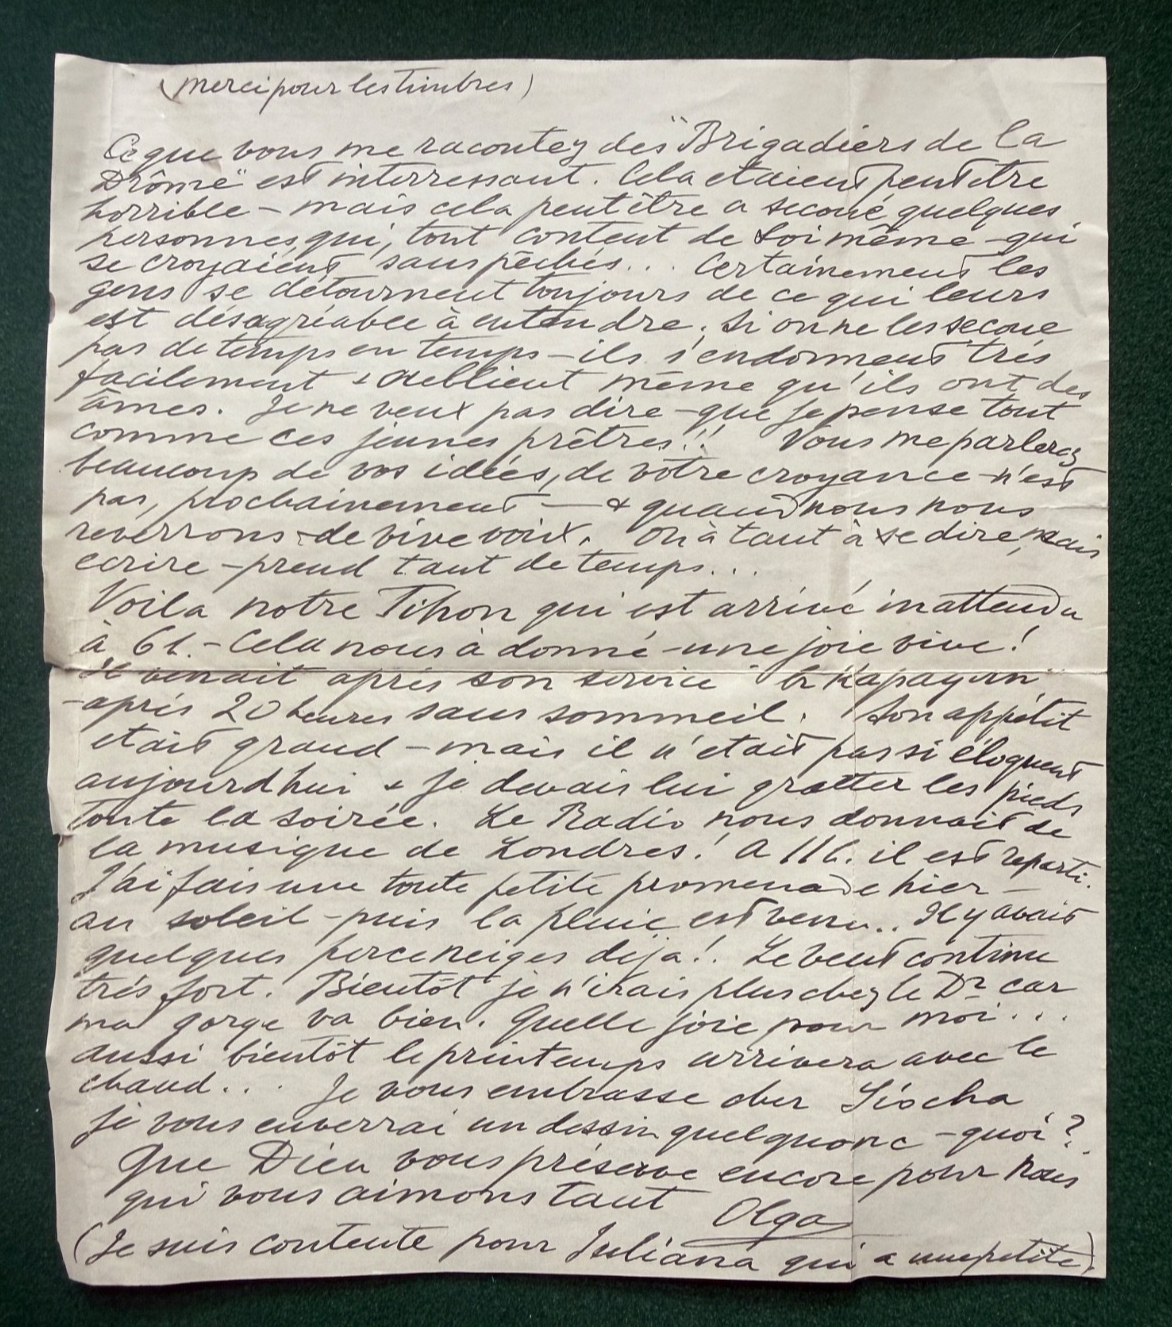 (merci pour les timbres)
Ce que vous me racontez des "Brigadiers de la
Drôme" est interressant. Cela etaient peut être
horrible – mais cela peut être a secoué quelques
personnes qui, tout content de soi même – qui
se croyaient sans péchés... Certainement les
gens se détournent toujours de ce qui leurs
est désagréable à entendre. Si on ne les secoue
pas de temps en temps – ils s'endorment très
facilement & oublient même qu'ils ont des
âmes. Je ne veux pas dire – que je pense tout
comme ces jeunes prêtres!! Vous me parlerez
beaucoup de vos idées, de votre croyance – n'est
pas, prochainement – & quand nous nous
reverrons – de vive voix. On à tant à se dire, mais
ecrire – prend tant de temps...
Voila notre Tihon qui est arrivé inattendu
à 6h. – Cela nous à donné – une joie vive!
Il venait après son service
– après 20 heures sans sommeil. Son appétit
etait grand – mais il n'etait pas si éloquent
aujourdhui & je devais lui gratter les pieds
toute la soirée. Le Radio nous donnait de
la musique de Londres! A 11h. il est reparti.
J'ai fais une toute petite promenade hier –
au soleil – puis la pluie est venu.. Il y avait
quelques perce neiges déja!. Le vent continu
très fort. Bientôt je n'irais plus chez le Dr car
ma gorge va bien. Quelle joie pour moi...
aussi bientôt le printemps arrivera avec le
chaud... Je vous embrasse cher Liocha
je vous enverrai un dessin quelquonc – quoi?
Que Dieu vous préserve encore pour nous
qui vous aimons tant Olga
(Je suis contente pour Juliana qui a une petite)